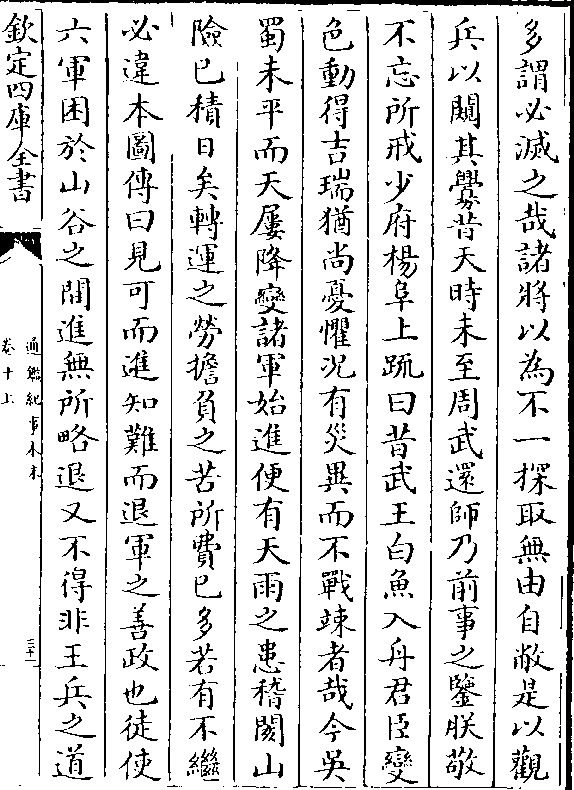 多謂必滅之哉諸將以為不一探取無由自敝是以觀
兵以闚其釁昔天時未至周武還師乃前事之鑒朕敬
不忘所戒少府楊阜上疏曰昔武王白魚入舟君臣變
色動得吉瑞猶尚憂懼况有災異而不戰竦者哉今吳
蜀未平而天屢降變諸軍始進便有天雨之患稽閡山
險已積日矣轉運之勞擔負之苦所費已多若有不繼
必違本圖傳曰見可而進知難而退軍之善政也徒使
六軍困於山谷之間進無所略退又不得非王兵之道
欽定四庫全書
通鑑紀事本末
卷十上
三十二